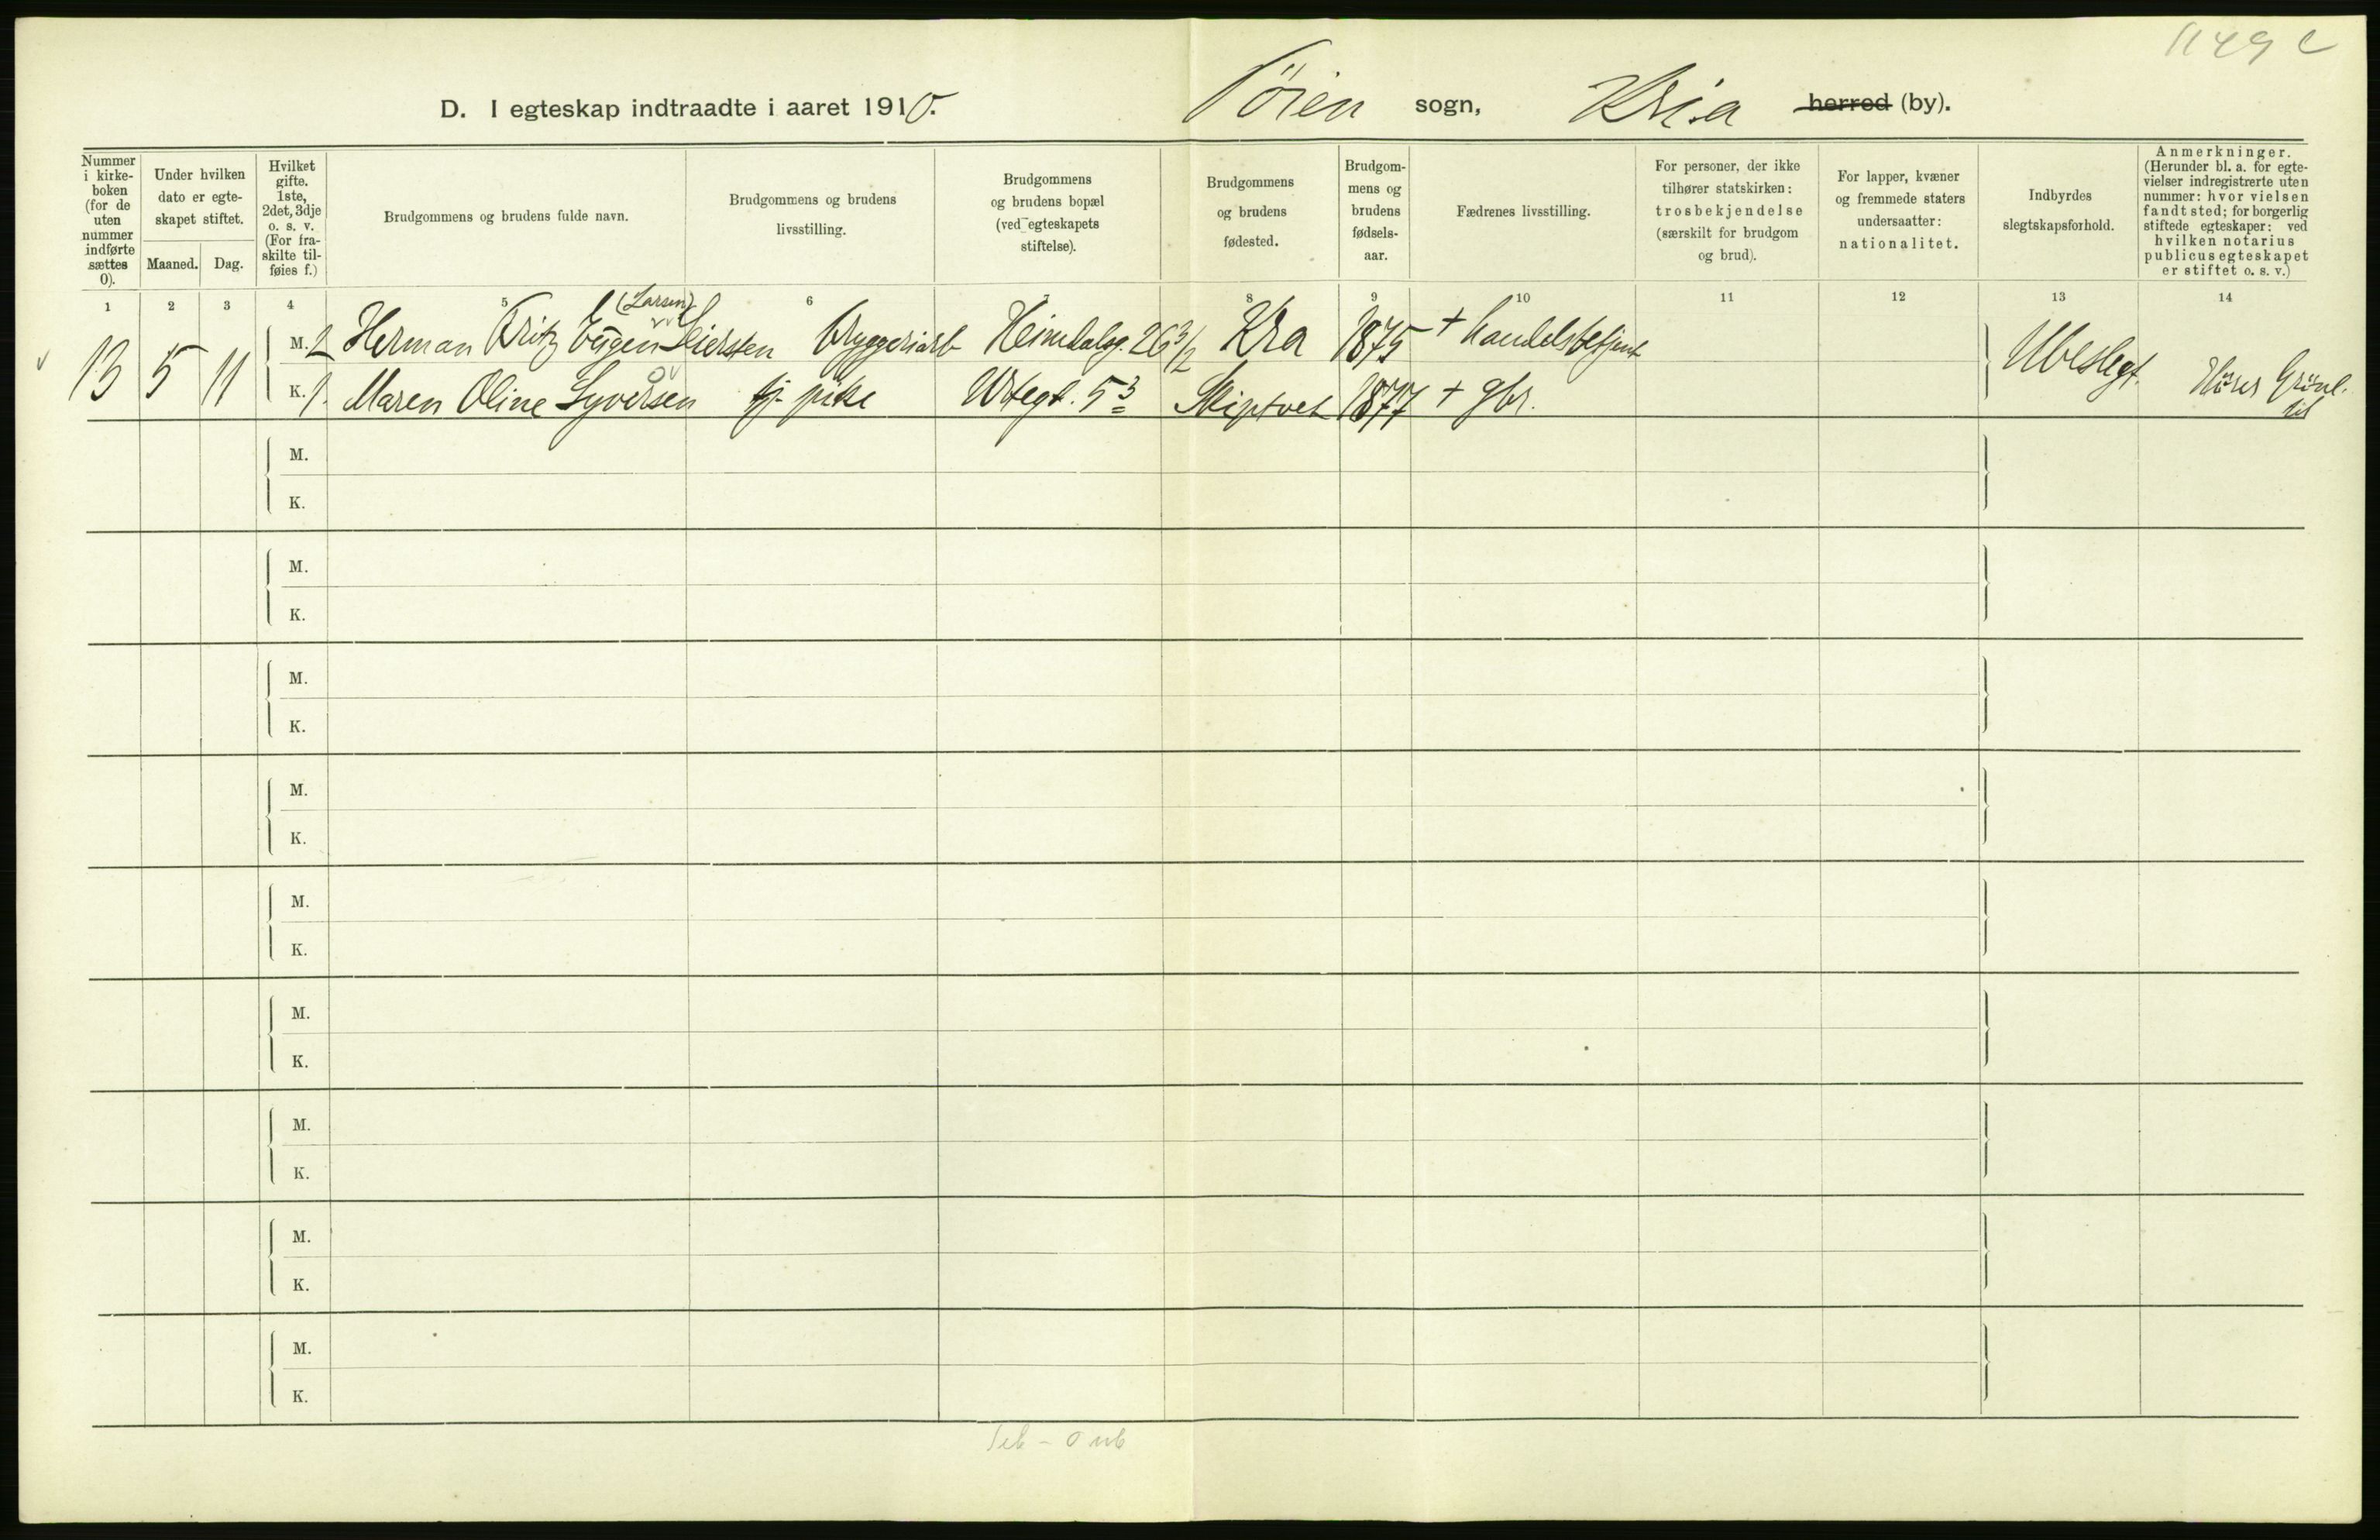 1149 c
D. I egteskap indtraadte i aaret 1910. Töien sogn, Kria herred (by).
Nummer i kirkeboken (for de uten nummer indførte sættes 0).
Under hvilken dato er egteskapet stiftet.
Maaned. Dag.
Hvilket gifte. 1ste, 2det, 3dje o. s. v. (For fraskilte tilføies f.)
Brudgommens og brudens fulde navn.
Brudgommens og brudens livsstilling.
Brudgommens og brudens bopæl (ved egteskapets stiftelse).
Brudgommens og brudens fødested.
Brudgommens og brudens fødselsaar.
Fædrenes livsstilling.
For personer, der ikke tilhører statskirken: trosbekjendelse (særskilt for brudgom og brud).
For lapper, kvæner og fremmede staters undersaatter: nationalitet.
Indbyrdes slegtskapsforhold.
Anmerkninger. (Herunder bl. a. for egtevielser indregistrerte uten nummer: hvor vielsen fandt sted; for borgerlig stiftede egteskaper: ved hvilken notarius publicus egteskapet er stiftet o. s. v.)
1 2 3 4 5 6 7 8 9 10 11 12 13 14
(Larsen)
13 5 11 M. 2 Herman Fritz Eugen Seiersten bryggeriarb Heimdalsg. 26 3/2 Kra 1875 + handelsbetjent Ubeslegt.
K. 1. Maren Oline Syversen tj. pike Urtegt. 5 3 Skiptvet 1877 + gbr. Hörer Grönl. til
M.
K.
M.
K.
M.
K.
M.
K.
M.
K.
M.
K.
M.
K.
M.
K.
M.
K.